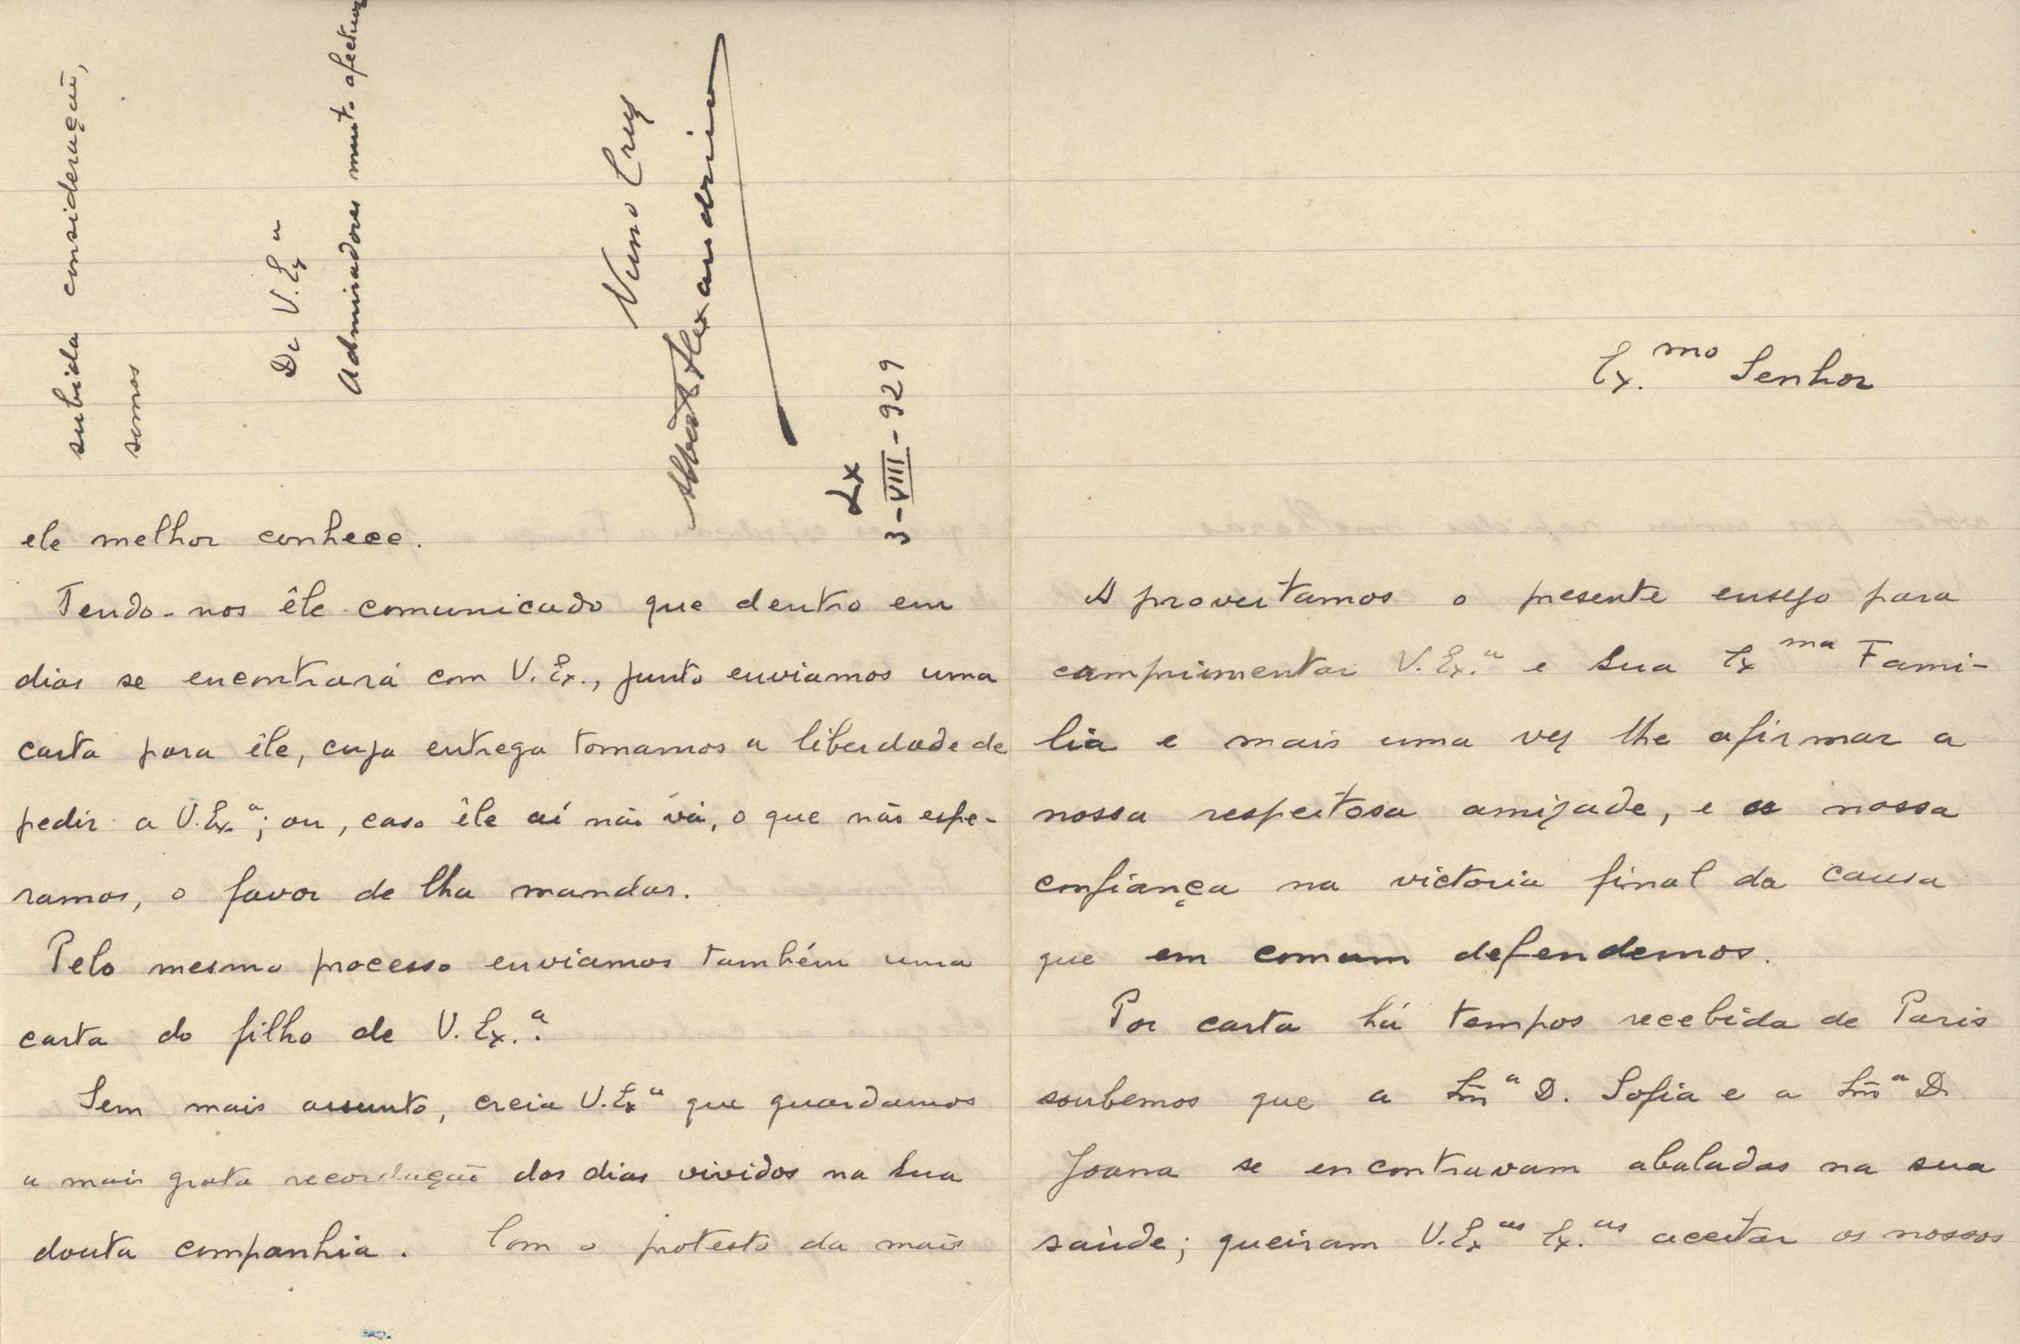 Ex.mo Senhor
Aproveitamos o presente ensejo para
cumprimentar V. Ex.a e sua Ex ma Fami-
lia e mais uma vez lhe afirmar a
nossa respeitosa amizade, e a nossa
confiança na victoria final da causa
que em comum defendemos.
Por carta há tempos recebida de Paris
soubemos que a Sr.a D. Sofia e a Sr.a D.
Joana se encontravam abaladas na sua
saúde; queiram V. Ex.as Ex.as aceitar os nossos
ele melhor conhece.
Tendo-nos êle comunicado que dentro em
dias se encontrará com V. Ex., junto enviamos uma
carta para êle, cuja entrega tomamos a liberdade de
pedir a V. Ex.a; ou, caso êle aí não vá, o que não espe-
ramos, o favor de lha mandar.
Pelo mesmo processo enviamos também uma
carta do filho de V. Ex.a
Sem mais assunto, creia V. Ex.a que guardamos
a mais grata recordação dos dias vividos na sua
douta companhia. Com o protesto da mais
subida consideração,
somos
De V. Ex.a
Admiradores muito
Nuno Cruz
Alberto Alexandrino
Lx
3-VIII-929